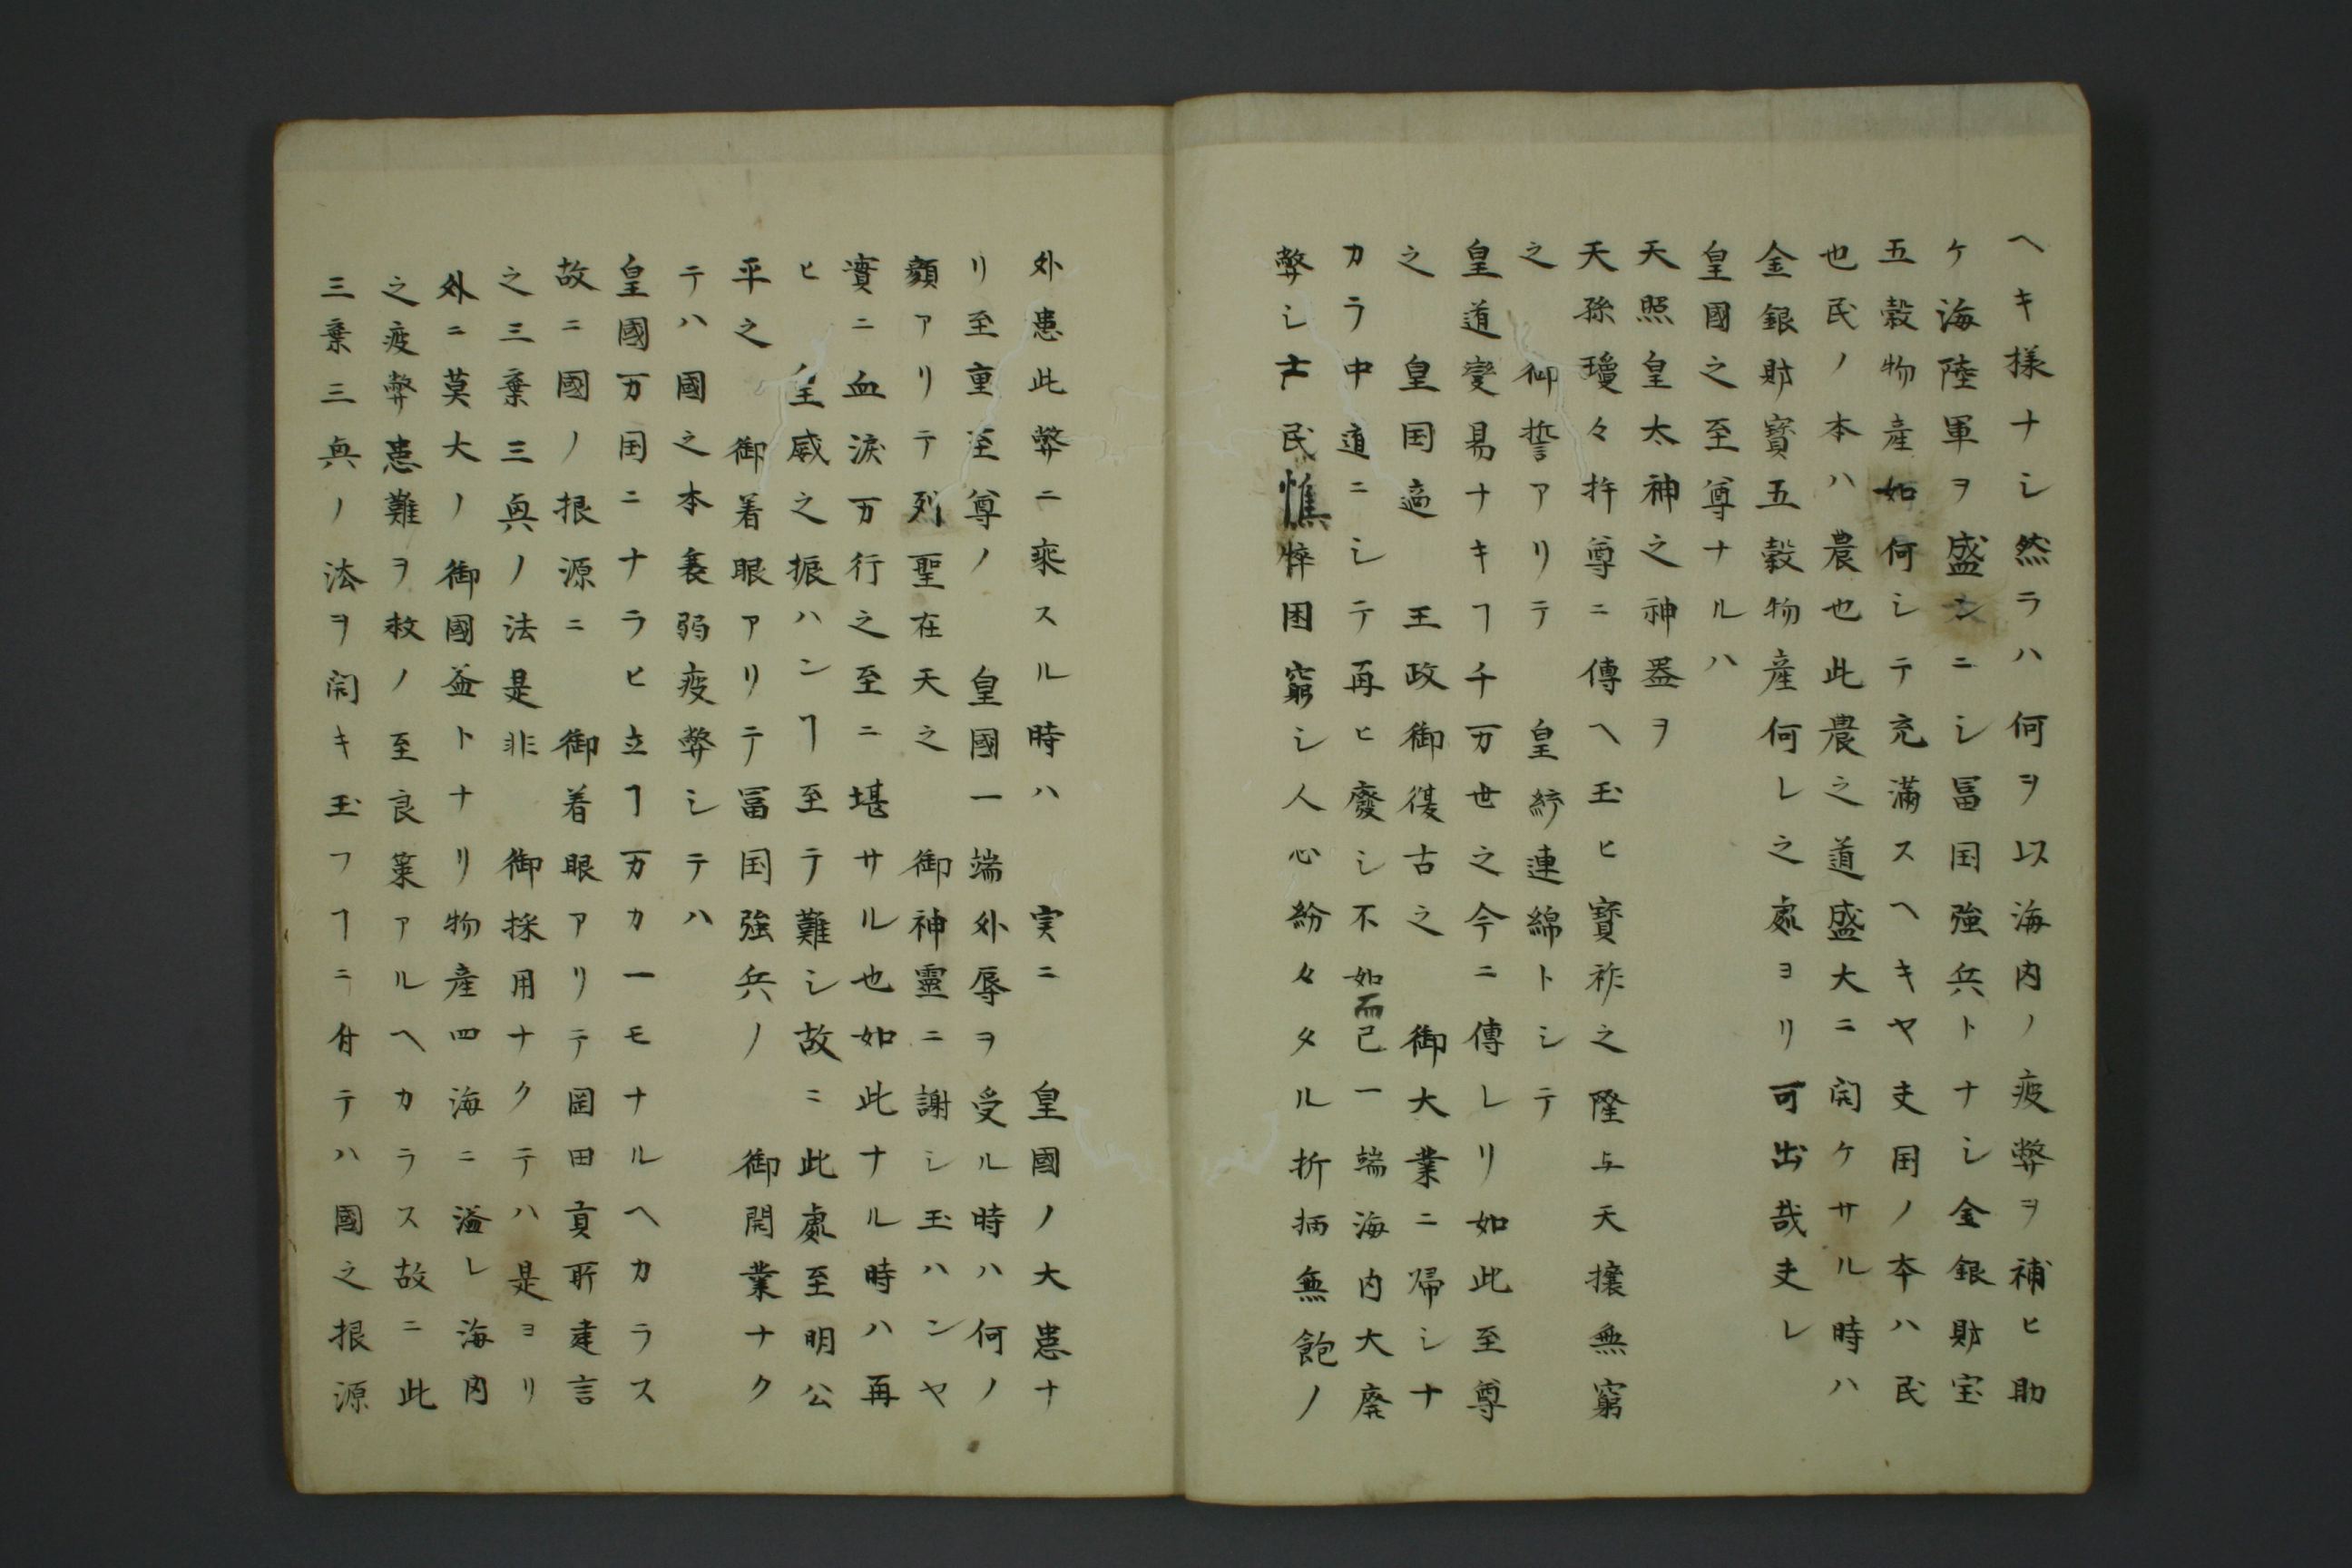 ヘキ様ナシ然ラハ何ヲ以海内ノ疲弊ヲ補ヒ助
ケ海陸軍ヲ盛ンニシ冨国強兵トナシ金銀財宝
五穀物産如何シテ充滿スヘキヤ夫国ノ本ハ民
也民ノ本ハ農也此農之道盛大ニ開ケサル時ハ
金銀財寳五穀物産何レ之處ヨリ可出哉夫レ
皇國之至尊ナルハ
天照皇太神之神器ヲ
天孫瓊々杵尊ニ傳ヘ玉ヒ寳祚之隆与天攘無窮
之 御誓アリテ 皇綷連綿トシテ
皇道變易ナキヿ千万世之今ニ傳レリ如此至尊
之 皇国適 王政御復古之 御大業ニ帰シナ
カラ中道ニシテ再ヒ廢シ不如而已一端海内大廃
弊シ士民憔悴困窮シ人心紛々タル折柄無飽ノ
外患此弊ニ乘スル時ハ 実ニ 皇國ノ大患ナ
リ至重至尊ノ 皇國一端外辱ヲ受ル時ハ何ノ
顔アリテ列聖在天之 御神靈ニ謝シ玉ハンヤ
實ニ血涙万行之至ニ堪サル也如此ナル時ハ再
ヒ 皇威之振ハンヿ至テ難シ故ニ此處至明公
平之 御着眼アリテ冨国強兵ノ 御開業ナク
テハ國之本衰弱疲弊シテハ
皇國万国ニナラヒ立ヿ万カ一モナルヘカラス
故ニ國ノ根源ニ 御着眼アリテ岡田貢所建言
之三棄三興ノ法是非 御採用ナクテハ是ヨリ
外ニ莫大ノ御國益トナリ物産四海ニ溢レ海内
之疲弊患難ヲ救ノ至良策アルヘカラス故ニ此
三棄三興ノ法ヲ開キ玉フヿニ付テハ國之根源